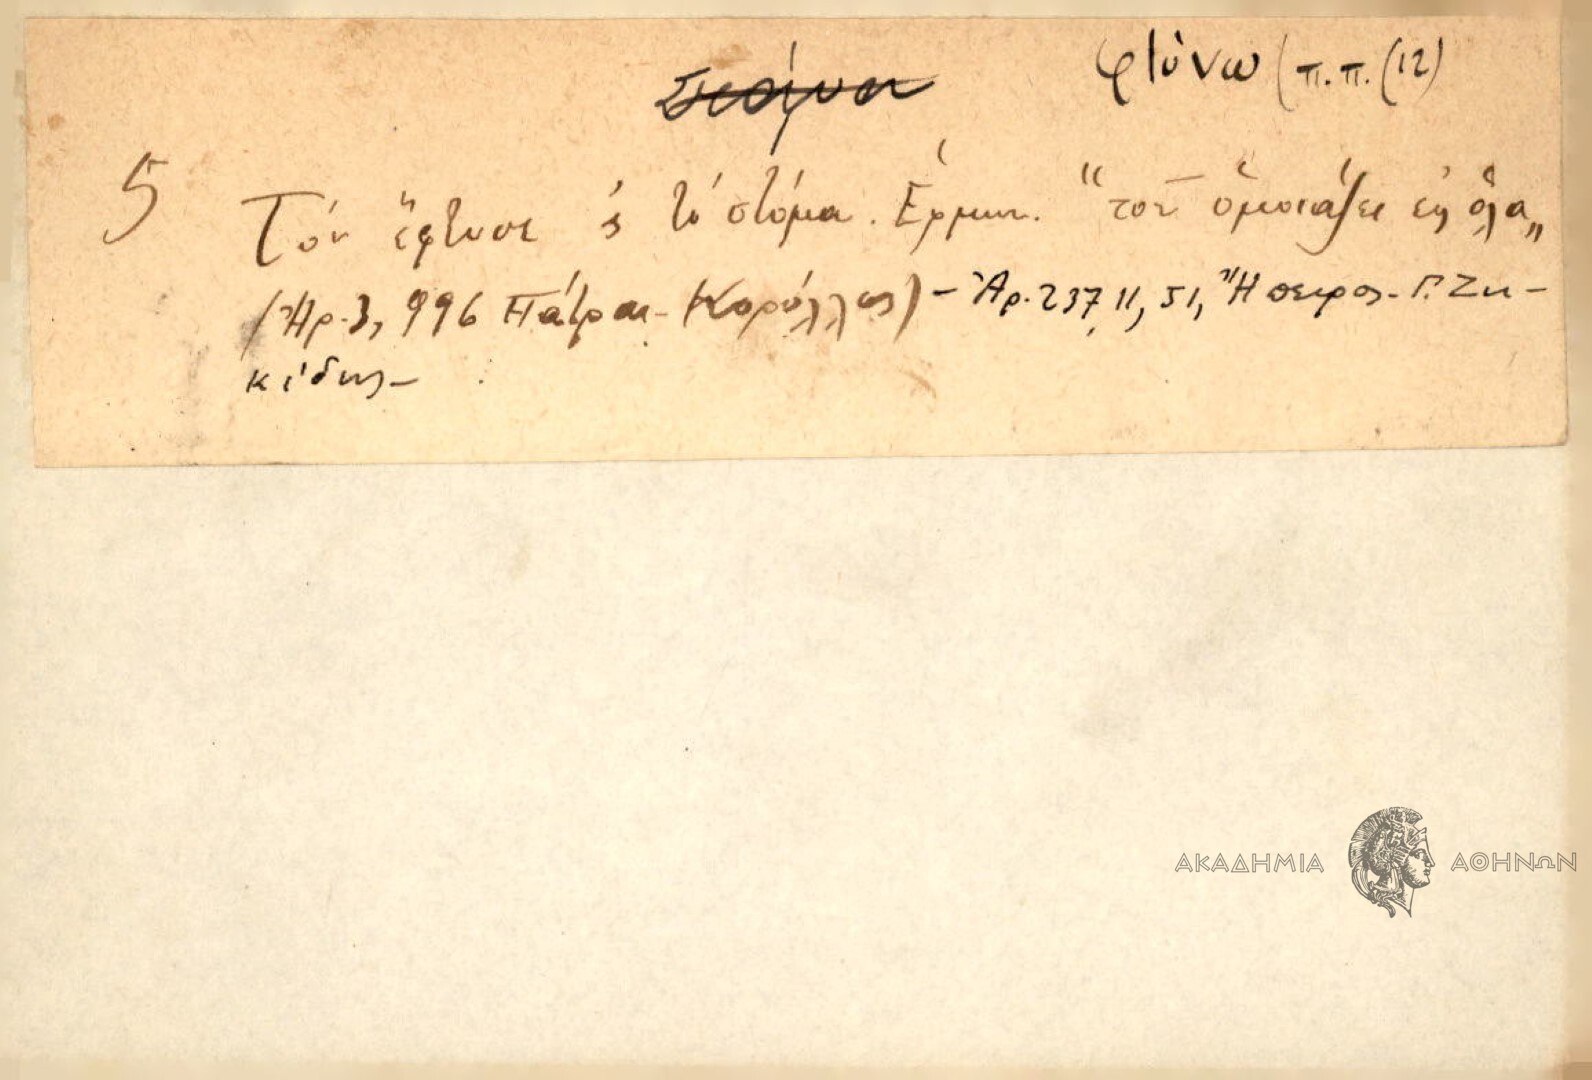 φτύνω (π.π. (12)
5 Τόν ἔφτυσε 'ς τό στόμα. Ἑρμην. "τοῦ ὁμοιάζει εἰς ὅλα„
(Ἀρ. 3, 996 Πάτραι - Κορύλλος) - Ἀρ. 237, 11, 51, Ἤπειρος - Γ. Ζη-
κίδης -
ΑΚΑΔΗΜΙΑ ΑΘΗΝΩΝ